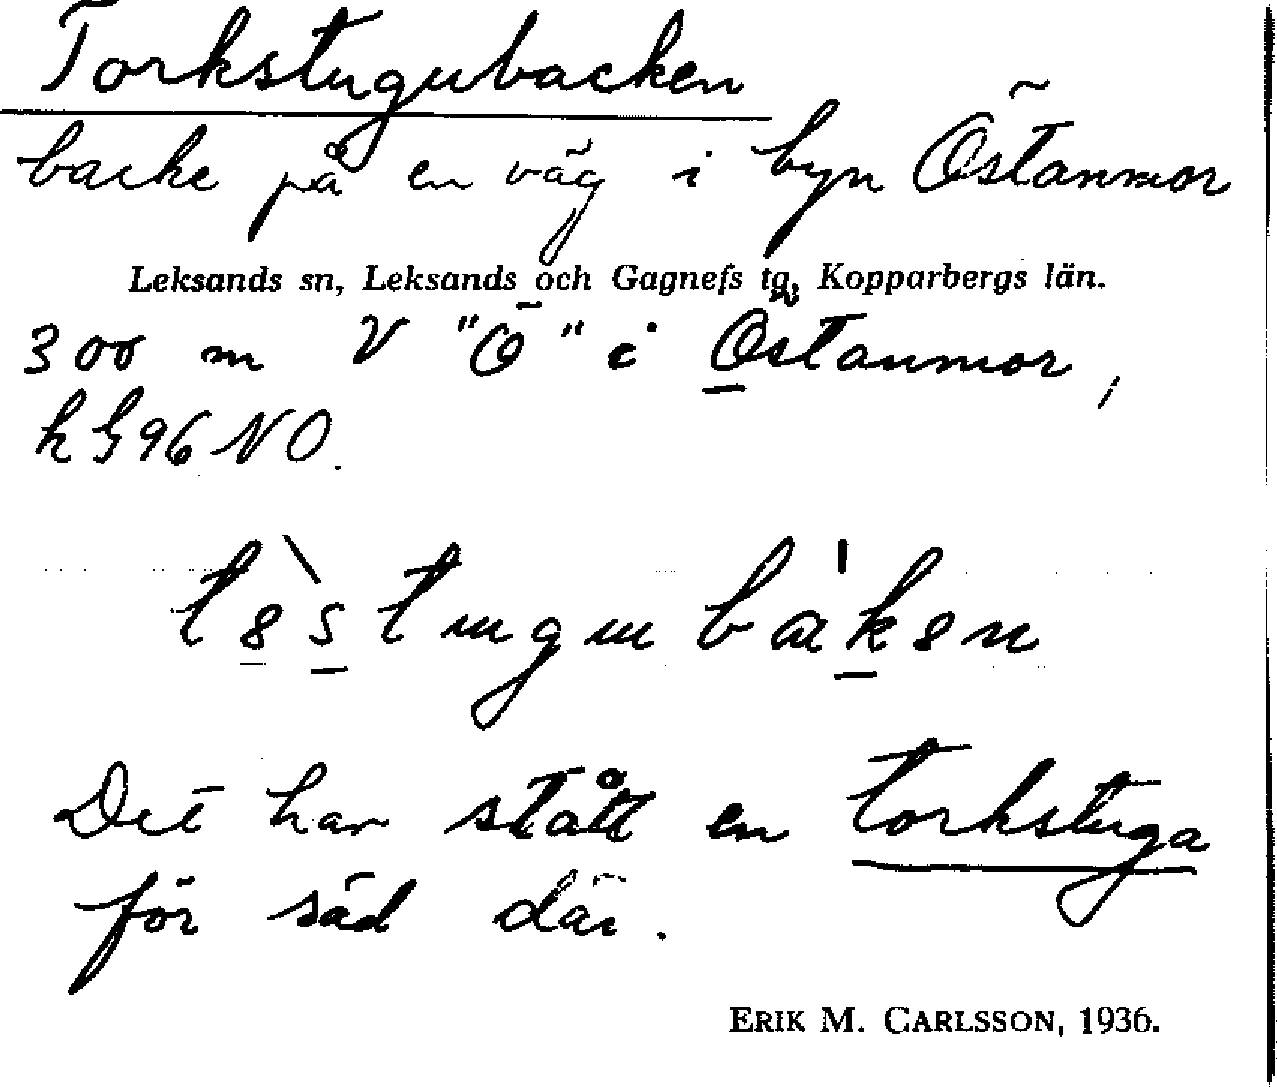 Torkstugubacken
backe på en väg i byn Östanmor
Leksands sn, Leksands och Gagnefs tg, Kopparbergs län.
300 m V "Ö" i Östanmor,
k G96 NO.
Det har stått en torkstuga
för säd där.
ERIK M. CARLSSON, 1936.